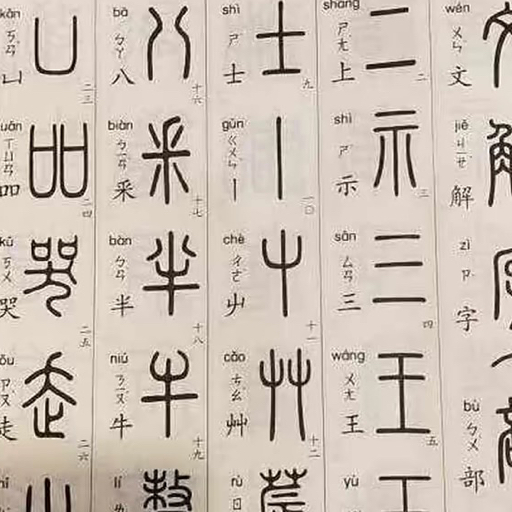 wén ㄨㄣˊ 文
jiě ㄐㄧㄝˇ 解
zì ㄗˋ 字
bù ㄅㄨˋ 部
shàng ㄕㄤˋ 上 二
shì ㄕˋ 示 三
sān ㄙㄢ 三 四
wáng ㄨㄤˊ 王 五
yù
shì ㄕˋ 士 九
gǔn ㄍㄨㄣˇ 丨 一〇
chè ㄔㄜˋ 屮 十一
cǎo ㄘㄠˇ 艸 十二
rù
bā ㄅㄚ 八 十六
biàn ㄅㄧㄢˋ 釆 十七
bàn ㄅㄢˋ 半 十八
niú ㄋㄧㄡˊ 牛 十九
lí
kǎn ㄎㄢˇ 凵 二三
uān ㄒㄩㄢ 吅 二四
kū ㄎㄨ 哭 二五
ǒu ㄗㄡˇ 二六